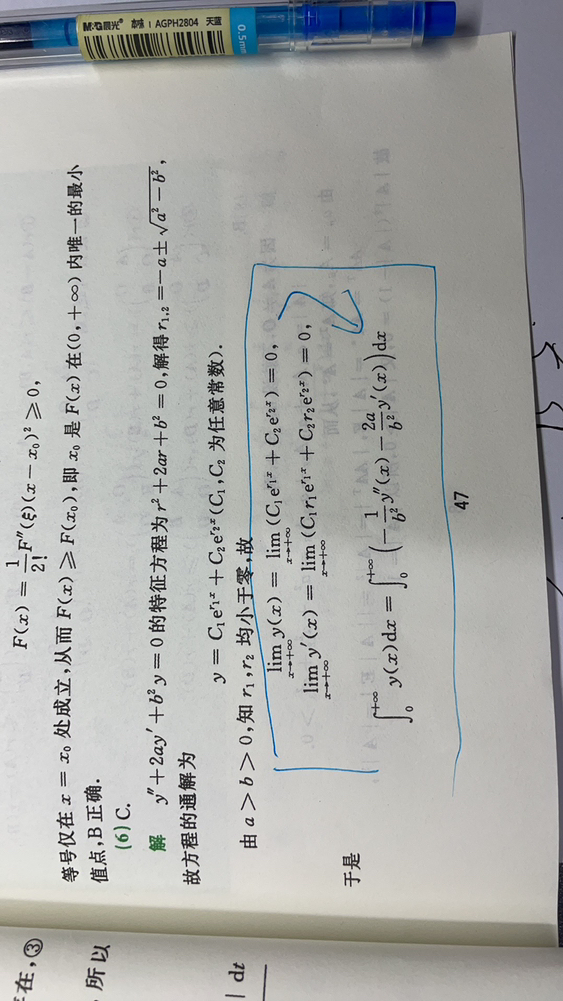 M&G 晨光 本味 | AGPH2804 天蓝
0.5mm
F(x) = \frac{1}{2!}F''(ξ)(x − x_0)^2 ⩾ 0,
等号仅在 x = x_0 处成立,从而 F(x) ⩾ F(x_0),即 x_0 是 F(x) 在(0, +∞)内唯一的最小
值点,B 正确.
(6) C.
解 y'' + 2ay' + b^2 y = 0 的特征方程为 r^2 + 2ar + b^2 = 0,解得 r_{1,2} = −a ± \sqrt{a^2 − b^2},
故方程的通解为
y = C_1 e^{r_1 x} + C_2 e^{r_2 x} (C_1, C_2 为任意常数).
由 a > b > 0,知 r_1, r_2 均小于零,故
\lim_{x→+∞} y(x) = \lim_{x→+∞} (C_1 e^{r_1 x} + C_2 e^{r_2 x}) = 0,
\lim_{x→+∞} y'(x) = \lim_{x→+∞} (C_1 r_1 e^{r_1 x} + C_2 r_2 e^{r_2 x}) = 0,
于是
\int_0^{+∞} y(x)dx = \int_0^{+∞} (−\frac{1}{b^2} y''(x) − \frac{2a}{b^2} y'(x)) dx
47
在,③
所以
| dt